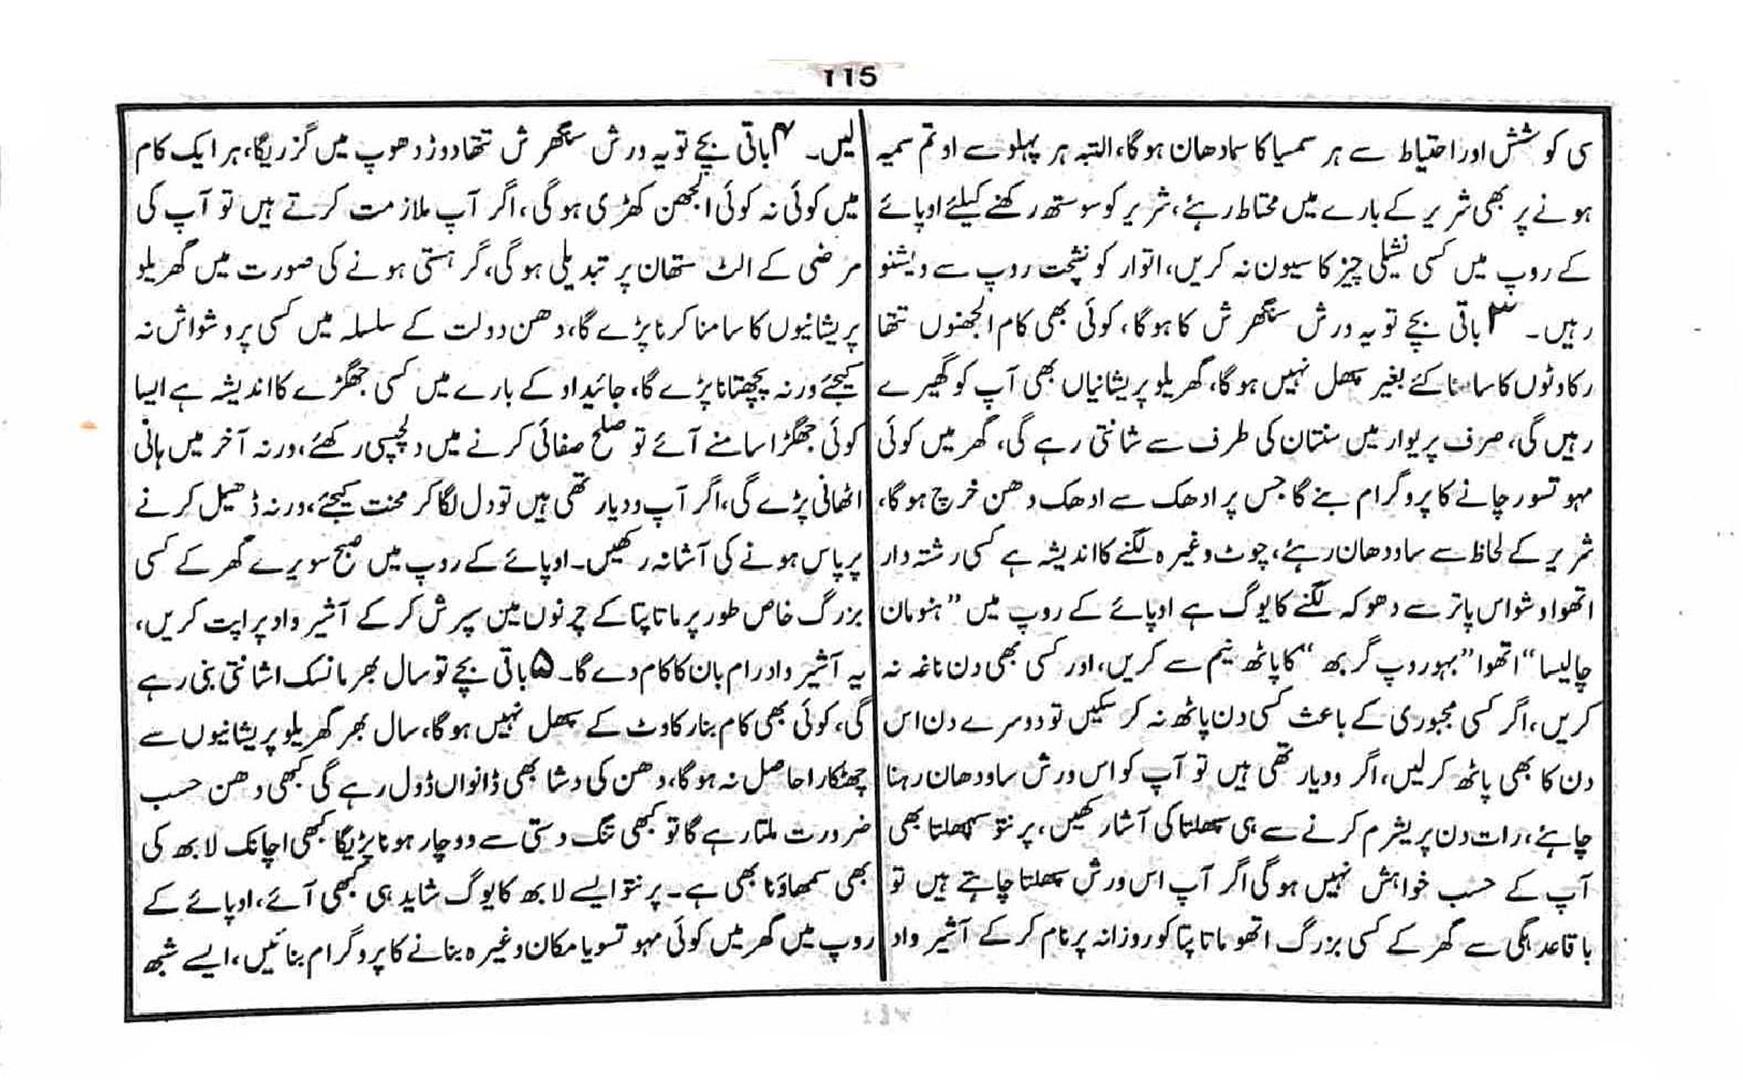 115
سی کوشش اور احتیاط سے ہر سمسیا کا سمادھان ہوگا، البتہ ہر پہلو سے اوتم سمیہ
ہونے پر بھی شریر کے بارے میں محتاط رہئے، شریر کو سوستھ رکھنے کیلئے اوپائے
کے روپ میں کسی نشیلی چیز کا سیون نہ کریں، اتوار کو نشچت روپ سے ویشنو
رہیں۔ ۳ باقی بچے تو یہ ورش سنگھرش کا ہوگا، کوئی بھی کام الجھنوں تتھا
رکاوٹوں کا سامنا کئے بغیر پھل نہیں ہوگا، گھریلو پریشانیاں بھی آپ کو گھیرے
رہیں گی، صرف پریوار میں سنتان کی طرف سے شانتی رہے گی، گھر میں کوئی
مہوتسو رچانے کا پروگرام بنے گا جس پر ادھک سے ادھک دھن خرچ ہوگا،
شریر کے لحاظ سے ساودھان رہئے، چوٹ وغیرہ لگنے کا اندیشہ ہے کسی رشتہ دار
اتھوا وشواس پاتر سے دھوکہ لگنے کا یوگ ہے اوپائے کے روپ میں ”ہنومان
چالیسا“ اتھوا ”بہوروپ گربھ“ کا پاٹھ نیم سے کریں، اور کسی بھی دن ناغہ نہ
کریں، اگر کسی مجبوری کے باعث کسی دن پاٹھ نہ کر سکیں تو دوسرے دن اس
دن کا بھی پاٹھ کرلیں، اگر ودیارتھی ہیں تو آپ کو اس ورش ساودھان رہنا
چاہئے، رات دن پریشرم کرنے سے ہی سپھلتا کی آشا رکھیں، پرنتو سپھلتا بھی
آپ کے حسب خواہش نہیں ہوگی اگر آپ اس ورش سپھلتا چاہتے ہیں تو
باقاعدگی سے گھر کے کسی بزرگ اتھوا ماتا پتا کو روزانہ پرنام کر کے آشیرواد
لیں۔ ۴ باقی بچے تو یہ ورش سنگھرش تتھا دوڑ دھوپ میں گزریگا، ہر ایک کام
میں کوئی نہ کوئی الجھن کھڑی ہوگی، اگر آپ ملازمت کرتے ہیں تو آپ کی
مرضی کے الٹ ستھان پر تبدیلی ہوگی، گرہستی ہونے کی صورت میں گھریلو
پریشانیوں کا سامنا کرنا پڑے گا، دھن دولت کے سلسلہ میں کسی پر وشواش نہ
کیجئے ورنہ پچھتانا پڑے گا، جائیداد کے بارے میں کسی جھگڑے کا اندیشہ ہے ایسا
کوئی جھگڑا سامنے آئے تو صلح صفائی کرنے میں دلچسپی رکھئے، ورنہ آخر میں ہانی
اٹھانی پڑے گی، اگر آپ ودیارتھی ہیں تو دل لگا کر محنت کیجئے، ورنہ ڈھیل کرنے
پر پاس ہونے کی آشا نہ رکھیں۔ اوپائے کے روپ میں صبح سویرے گھر کے کسی
بزرگ خاص طور پر ماتا پتا کے چرنوں مین سپرش کر کے آشیرواد پراپت کریں،
یہ آشیرواد رام بان کا کام دے گا۔ ۵ باقی بچے تو سال بھر مانسک اشانتی بنی رہے
گی، کوئی بھی کام بنا رکاوٹ کے پھل نہیں ہوگا، سال بھر گھریلو پریشانیوں سے
چھٹکارا حاصل نہ ہوگا، دھن کی دشا بھی ڈانواں ڈول رہے گی کبھی دھن حسب
ضرورت ملتا رہے گا تو کبھی تنگ دستی سے دوچار ہونا پڑیگا کبھی اچانک لابھ کی
بھی سمبھاونا بھی ہے۔ پرنتو ایسے لابھ کا یوگ شاید ہی کبھی آئے، اوپائے کے
روپ میں گھر میں کوئی مہوتسو یا مکان وغیرہ بنانے کا پروگرام بنائیں، ایسے شبھ